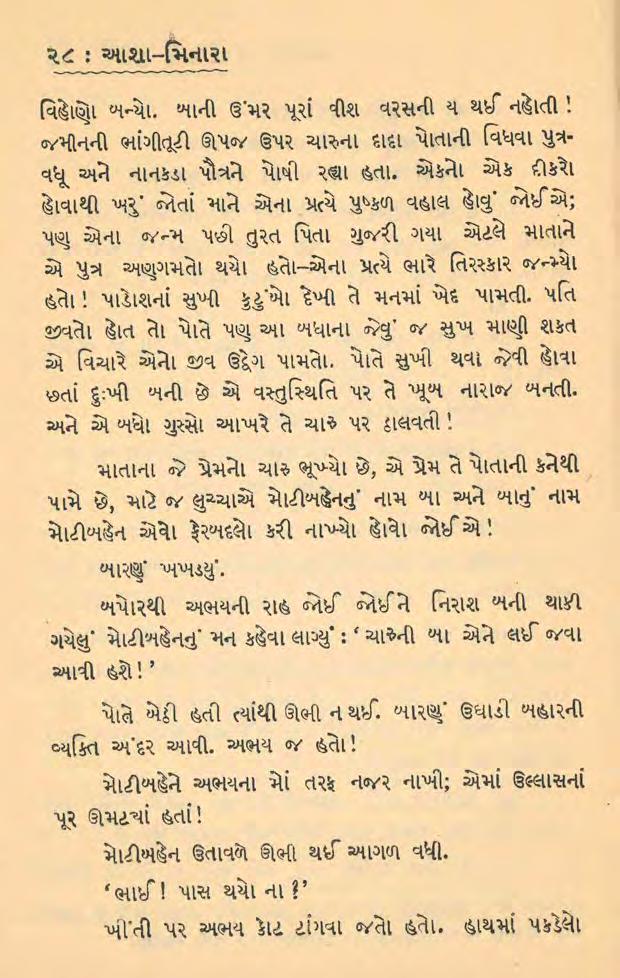 ૨૮ : આશા–મિનારા
વિહોણો બન્યો. બાની ઉંમર પૂરાં વીશ વરસની ય થઈ નહોતી !
જમીનની ભાંગીતૂટી ઊપજ ઉપર ચારુના દાદા પોતાની વિધવા પુત્ર-
વધૂ અને નાનકડા પૌત્રને પોષી રહ્યા હતા. એકનો એક દીકરો
હોવાથી ખરું જોતાં માને એના પ્રત્યે પુષ્કળ વહાલ હોવું જોઈએ;
પણ એના જન્મ પછી તુરત પિતા ગુજરી ગયા એટલે માતાને
એ પુત્ર અણગમતો થયો હતો–એના પ્રત્યે ભારે તિરસ્કાર જન્મ્યો
હતો ! પાડોશનાં સુખી કુટુંબો દેખી તે મનમાં ખેદ પામતી. પતિ
જીવતો હોત તો પોતે પણ આ બધાના જેવું જ સુખ માણી શકત
એ વિચારે એનો જીવ ઉદ્વેગ પામતો. પોતે સુખી થવા જેવી હોવા
છતાં દુઃખી બની છે એ વસ્તુસ્થિતિ પર તે ખૂબ નારાજ બનતી.
અને એ બધો ગુસ્સો આખરે તે ચારુ પર ઠાલવતી !
માતાના જે પ્રેમનો ચારુ ભૂખ્યો છે, એ પ્રેમ તે પોતાની કનેથી
પામે છે, માટે જ લુચ્ચાએ મોટીબહેનનું નામ બા અને બાનું નામ
મોટીબહેન એવો ફેરબદલો કરી નાખ્યો હોવો જોઈએ !
બારણું ખખડયું.
બપોરથી અભયની રાહ જોઈ જોઈને નિરાશ બની થાકી
ગયેલું મોટીબહેનનું મન કહેવા લાગ્યું : ‘ ચારુની બા એને લઈ જવા
આવી હશે ! ’
પોતે બેઠી હતી ત્યાંથી ઊભી ન થઈ. બારણું ઉઘાડી બહારની
વ્યક્તિ અંદર આવી. અભય જ હતો !
મોટીબહેને અભયના મોં તરફ નજર નાખી; એમાં ઉલ્લાસનાં
પૂર ઊમટયાં હતાં !
મોટીબહેન ઉતાવળે ઊભી થઈ આગળ વધી.
‘ ભાઈ ! પાસ થયો ના ?’
ખીંતી પર અભય કોટ ટાંગવા જતો હતો. હાથમાં પકડેલો